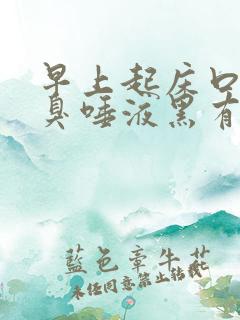 早上起床口
臭唾液黑有
藍色牽牛花
未经同意禁止转载